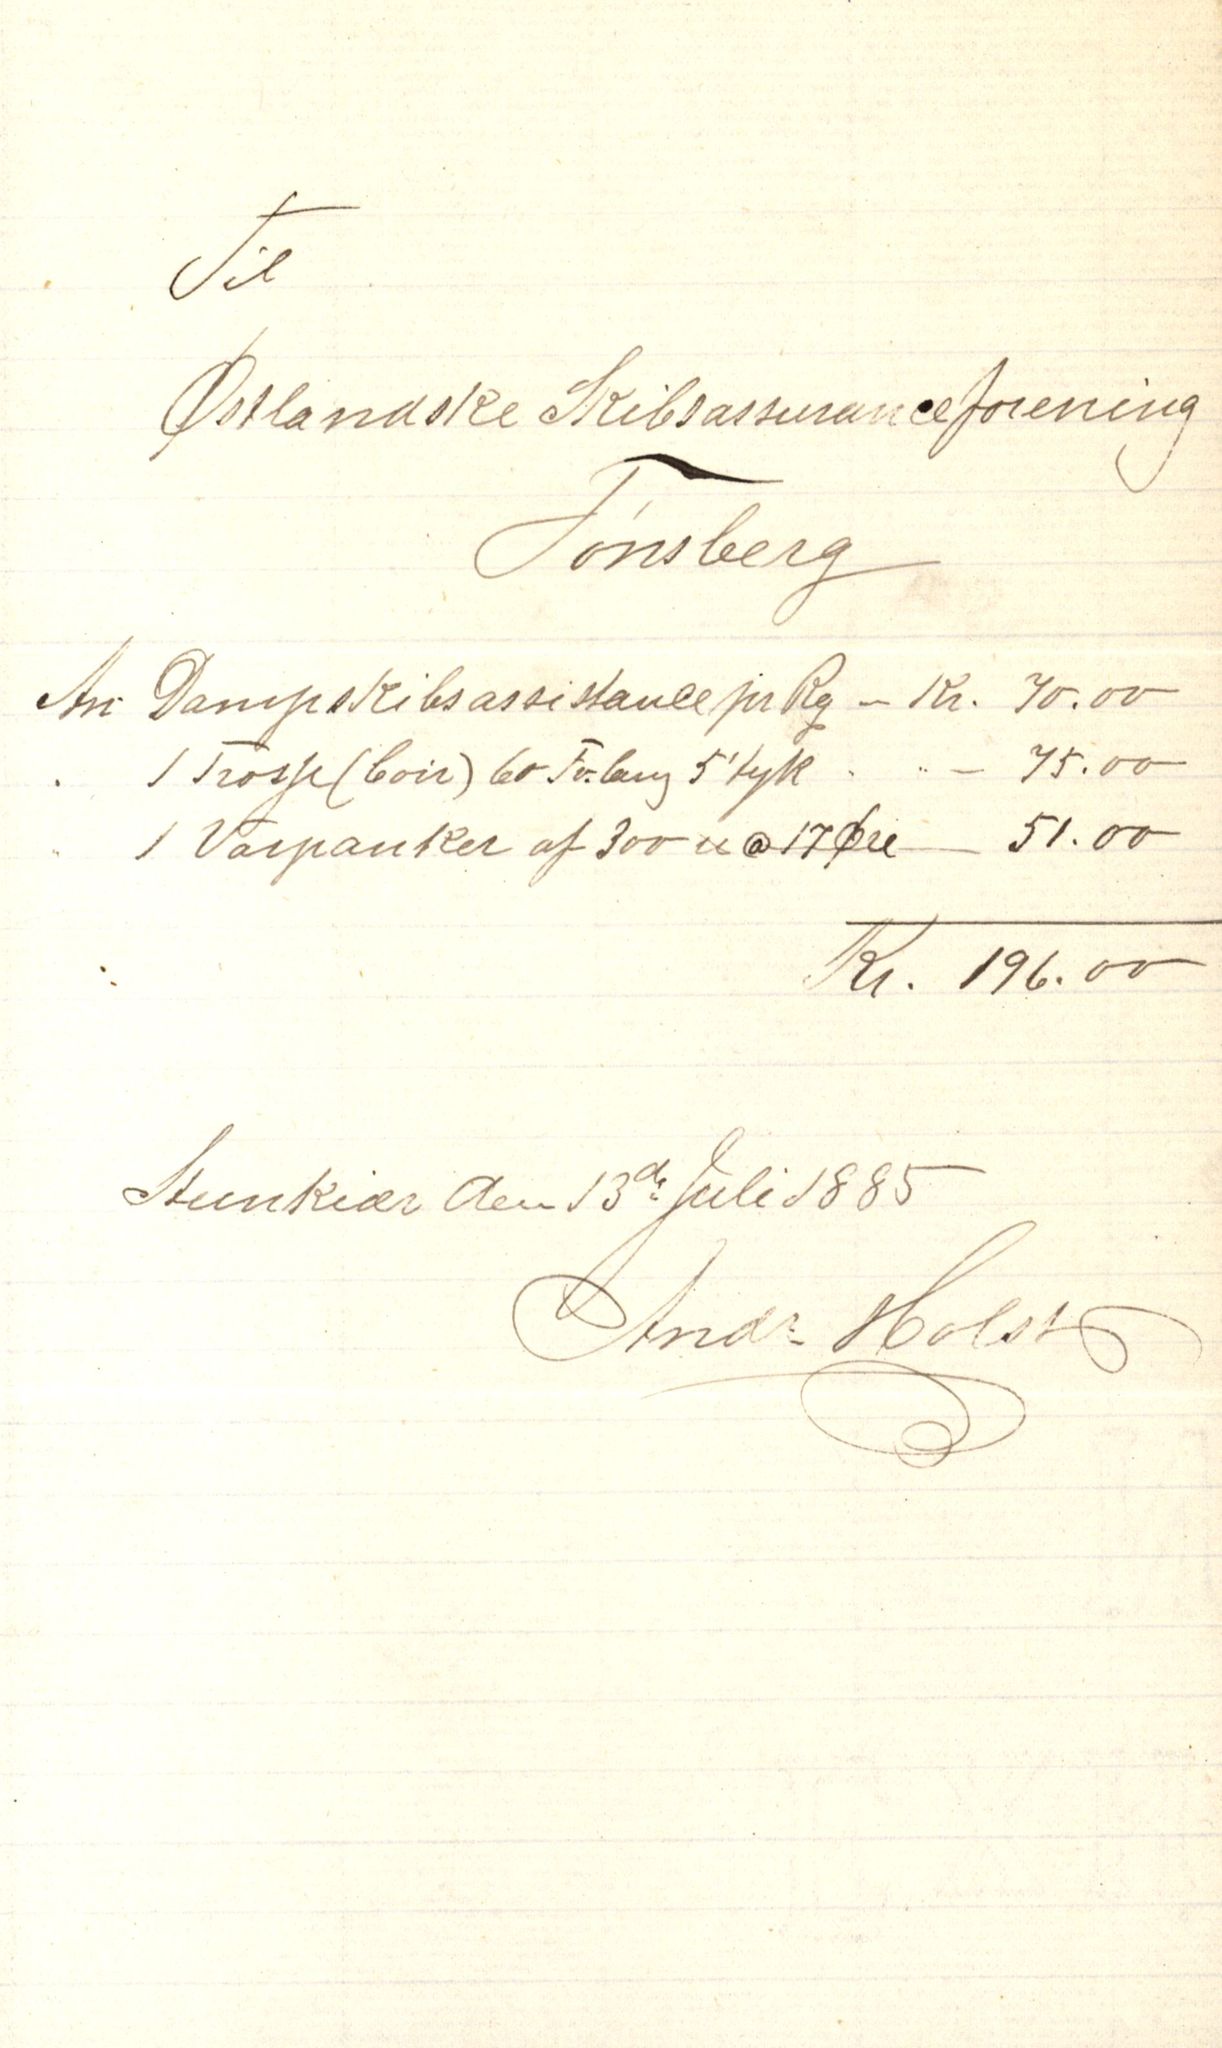 Til
Østlandske Skibsassuranceforening
Tønsberg
An Dampskibsassistance pr Rg – Kr. 70.00
" 1 Trosse (Coir) 60 Fv. lang 5" tyk " " – 75.00
" 1 Varpanker af 300 @ 17 Øre — 51.00
Kr. 196.00
Stenkiær den 13de Juli 1885
Andr Holst